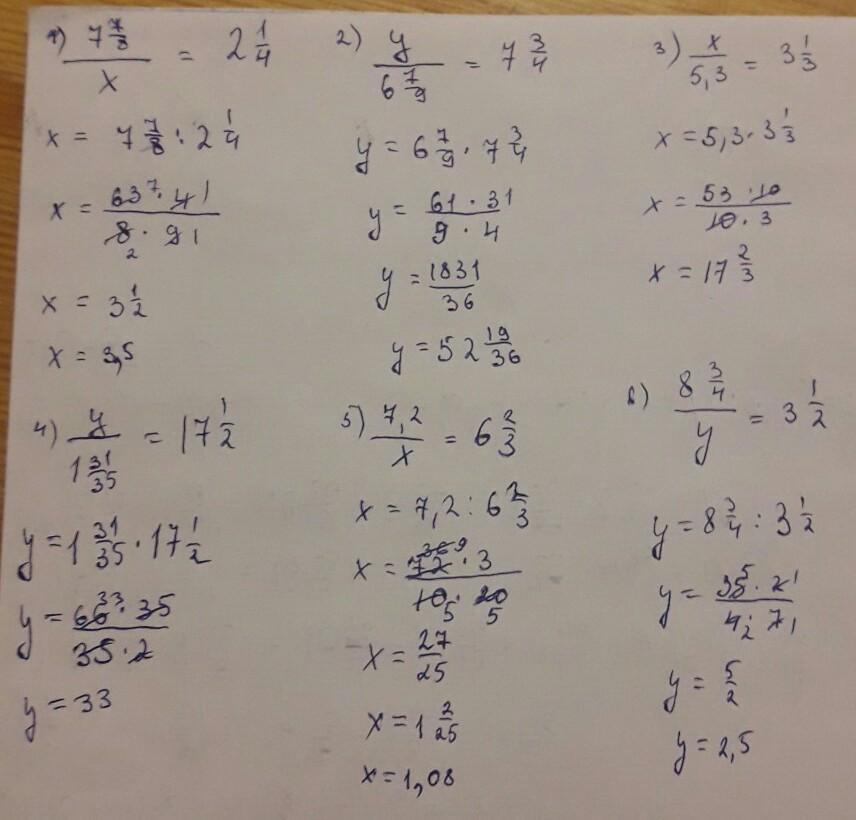 1) 7 7/8 / x = 2 1/4
x = 7 7/8 : 2 1/4
x = 63 7 · 4 1 / 8 2 · 9 1
x = 3 1/2
x = 3,5
2) y / 6 7/9 = 7 3/4
y = 6 7/9 · 7 3/4
y = 61 · 31 / 9 · 4
y = 1831 / 36
y = 52 19/36
3) x / 5,3 = 3 1/3
x = 5,3 · 3 1/3
x = 53 · 10 / 10 · 3
x = 17 2/3
4) y / 1 31/35 = 17 1/2
y = 1 31/35 · 17 1/2
y = 66 33 · 35 / 35 · 2
y = 33
5) 7,2 / x = 6 2/3
x = 7,2 : 6 2/3
x = 72 36 9 · 3 / 10 5 · 20 5
x = 27/25
x = 1 2/25
x = 1,08
6) 8 3/4 / y = 3 1/2
y = 8 3/4 : 3 1/2
y = 35 5 · 2 1 / 4 2 · 7 1
y = 5/2
y = 2,5